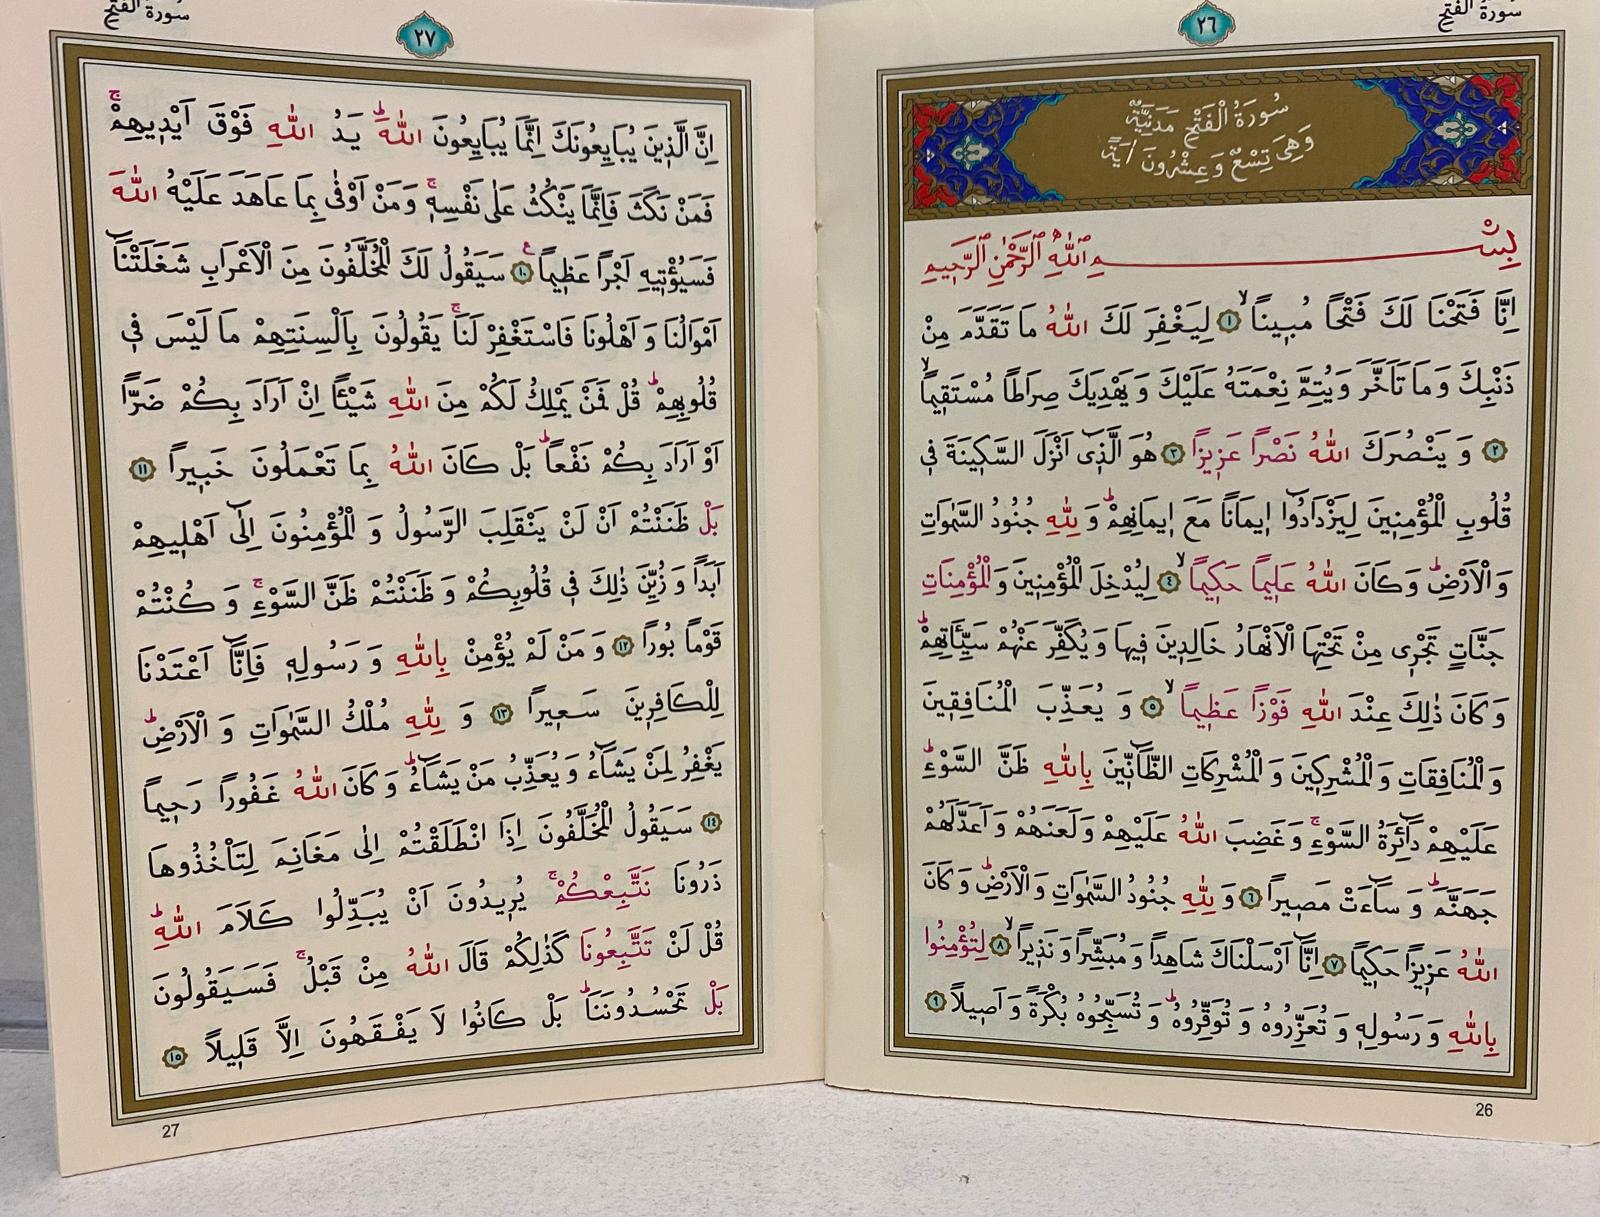 سورة الفتح
٢٦
سُورَةُ الْفَتْحِ مَدَنِيَّةٌ
وَهِيَ تِسْعٌ وَعِشْرُونَ اٰيَةً
بِسْمِ اللّٰهِ الرَّحْمٰنِ الرَّحٖيمِ
اِنَّا فَتَحْنَا لَكَ فَتْحًا مُبٖينًاۙ ﴿١﴾ لِيَغْفِرَ لَكَ اللّٰهُ مَا تَقَدَّمَ مِنْ
ذَنْبِكَ وَمَا تَاَخَّرَ وَيُتِمَّ نِعْمَتَهُ عَلَيْكَ وَيَهْدِيَكَ صِرَاطًا مُسْتَقٖيمًاۙ
﴿٢﴾ وَيَنْصُرَكَ اللّٰهُ نَصْرًا عَزٖيزًا ﴿٣﴾ هُوَ الَّذٖٓى اَنْزَلَ السَّكٖينَةَ فٖى
قُلُوبِ الْمُؤْمِنٖينَ لِيَزْدَادُٓوا اٖيمَانًا مَعَ اٖيمَانِهِمْؕ وَلِلّٰهِ جُنُودُ السَّمٰوَاتِ
وَالْاَرْضِؕ وَكَانَ اللّٰهُ عَلٖيمًا حَكٖيمًاۙ ﴿٤﴾ لِيُدْخِلَ الْمُؤْمِنٖينَ وَالْمُؤْمِنَاتِ
جَنَّاتٍ تَجْرٖى مِنْ تَحْتِهَا الْاَنْهَارُ خَالِدٖينَ فٖيهَا وَيُكَفِّرَ عَنْهُمْ سَيِّـَٔاتِهِمْؕ
وَكَانَ ذٰلِكَ عِنْدَ اللّٰهِ فَوْزًا عَظٖيمًاۙ ﴿٥﴾ وَيُعَذِّبَ الْمُنَافِقٖينَ
وَالْمُنَافِقَاتِ وَالْمُشْرِكٖينَ وَالْمُشْرِكَاتِ الظَّٓانّٖينَ بِاللّٰهِ ظَنَّ السَّوْءِؕ
عَلَيْهِمْ دَٓائِرَةُ السَّوْءِۚ وَغَضِبَ اللّٰهُ عَلَيْهِمْ وَلَعَنَهُمْ وَاَعَدَّ لَهُمْ
جَهَنَّمَؕ وَسَٓاءَتْ مَصٖيرًا ﴿٦﴾ وَلِلّٰهِ جُنُودُ السَّمٰوَاتِ وَالْاَرْضِؕ وَكَانَ
اللّٰهُ عَزٖيزًا حَكٖيمًا ﴿٧﴾ اِنَّٓا اَرْسَلْنَاكَ شَاهِدًا وَمُبَشِّرًا وَنَذٖيرًاۙ ﴿٨﴾ لِتُؤْمِنُوا
بِاللّٰهِ وَرَسُولِهٖ وَتُعَزِّرُوهُ وَتُوَقِّرُوهُؕ وَتُسَبِّحُوهُ بُكْرَةً وَاَصٖيلًا ﴿٩﴾
26
سورة الفتح
٢٧
اِنَّ الَّذٖينَ يُبَايِعُونَكَ اِنَّمَا يُبَايِعُونَ اللّٰهَؕ يَدُ اللّٰهِ فَوْقَ اَيْدٖيهِمْۚ
فَمَنْ نَكَثَ فَاِنَّمَا يَنْكُثُ عَلٰى نَفْسِهٖۚ وَمَنْ اَوْفٰى بِمَا عَاهَدَ عَلَيْهُ اللّٰهَ
فَسَيُؤْتٖيهِ اَجْرًا عَظٖيمًا ﴿١٠﴾ سَيَقُولُ لَكَ الْمُخَلَّفُونَ مِنَ الْاَعْرَابِ شَغَلَتْنَٓا
اَمْوَالُنَا وَاَهْلُونَا فَاسْتَغْفِرْ لَنَاۚ يَقُولُونَ بِاَلْسِنَتِهِمْ مَا لَيْسَ فٖى
قُلُوبِهِمْؕ قُلْ فَمَنْ يَمْلِكُ لَكُمْ مِنَ اللّٰهِ شَيْـًٔا اِنْ اَرَادَ بِكُمْ ضَرًّا
اَوْ اَرَادَ بِكُمْ نَفْعًاؕ بَلْ كَانَ اللّٰهُ بِمَا تَعْمَلُونَ خَبٖيرًا ﴿١١﴾
بَلْ ظَنَنْتُمْ اَنْ لَنْ يَنْقَلِبَ الرَّسُولُ وَالْمُؤْمِنُونَ اِلٰٓى اَهْلٖيهِمْ
اَبَدًا وَزُيِّنَ ذٰلِكَ فٖى قُلُوبِكُمْ وَظَنَنْتُمْ ظَنَّ السَّوْءِۚ وَكُنْتُمْ
قَوْمًا بُورًا ﴿١٢﴾ وَمَنْ لَمْ يُؤْمِنْ بِاللّٰهِ وَرَسُولِهٖ فَاِنَّٓا اَعْتَدْنَا
لِلْكَافِرٖينَ سَعٖيرًا ﴿١٣﴾ وَلِلّٰهِ مُلْكُ السَّمٰوَاتِ وَالْاَرْضِؕ
يَغْفِرُ لِمَنْ يَشَٓاءُ وَيُعَذِّبُ مَنْ يَشَٓاءُؕ وَكَانَ اللّٰهُ غَفُورًا رَحٖيمًا
﴿١٤﴾ سَيَقُولُ الْمُخَلَّفُونَ اِذَا انْطَلَقْتُمْ اِلٰى مَغَانِمَ لِتَاْخُذُوهَا
ذَرُونَا نَتَّبِعْكُمْۚ يُرٖيدُونَ اَنْ يُبَدِّلُوا كَلَامَ اللّٰهِؕ
قُلْ لَنْ تَتَّبِعُونَا كَذٰلِكُمْ قَالَ اللّٰهُ مِنْ قَبْلُۚ فَسَيَقُولُونَ
بَلْ تَحْسُدُونَنَاؕ بَلْ كَانُوا لَا يَفْقَهُونَ اِلَّا قَلٖيلًا ﴿١٥﴾
27